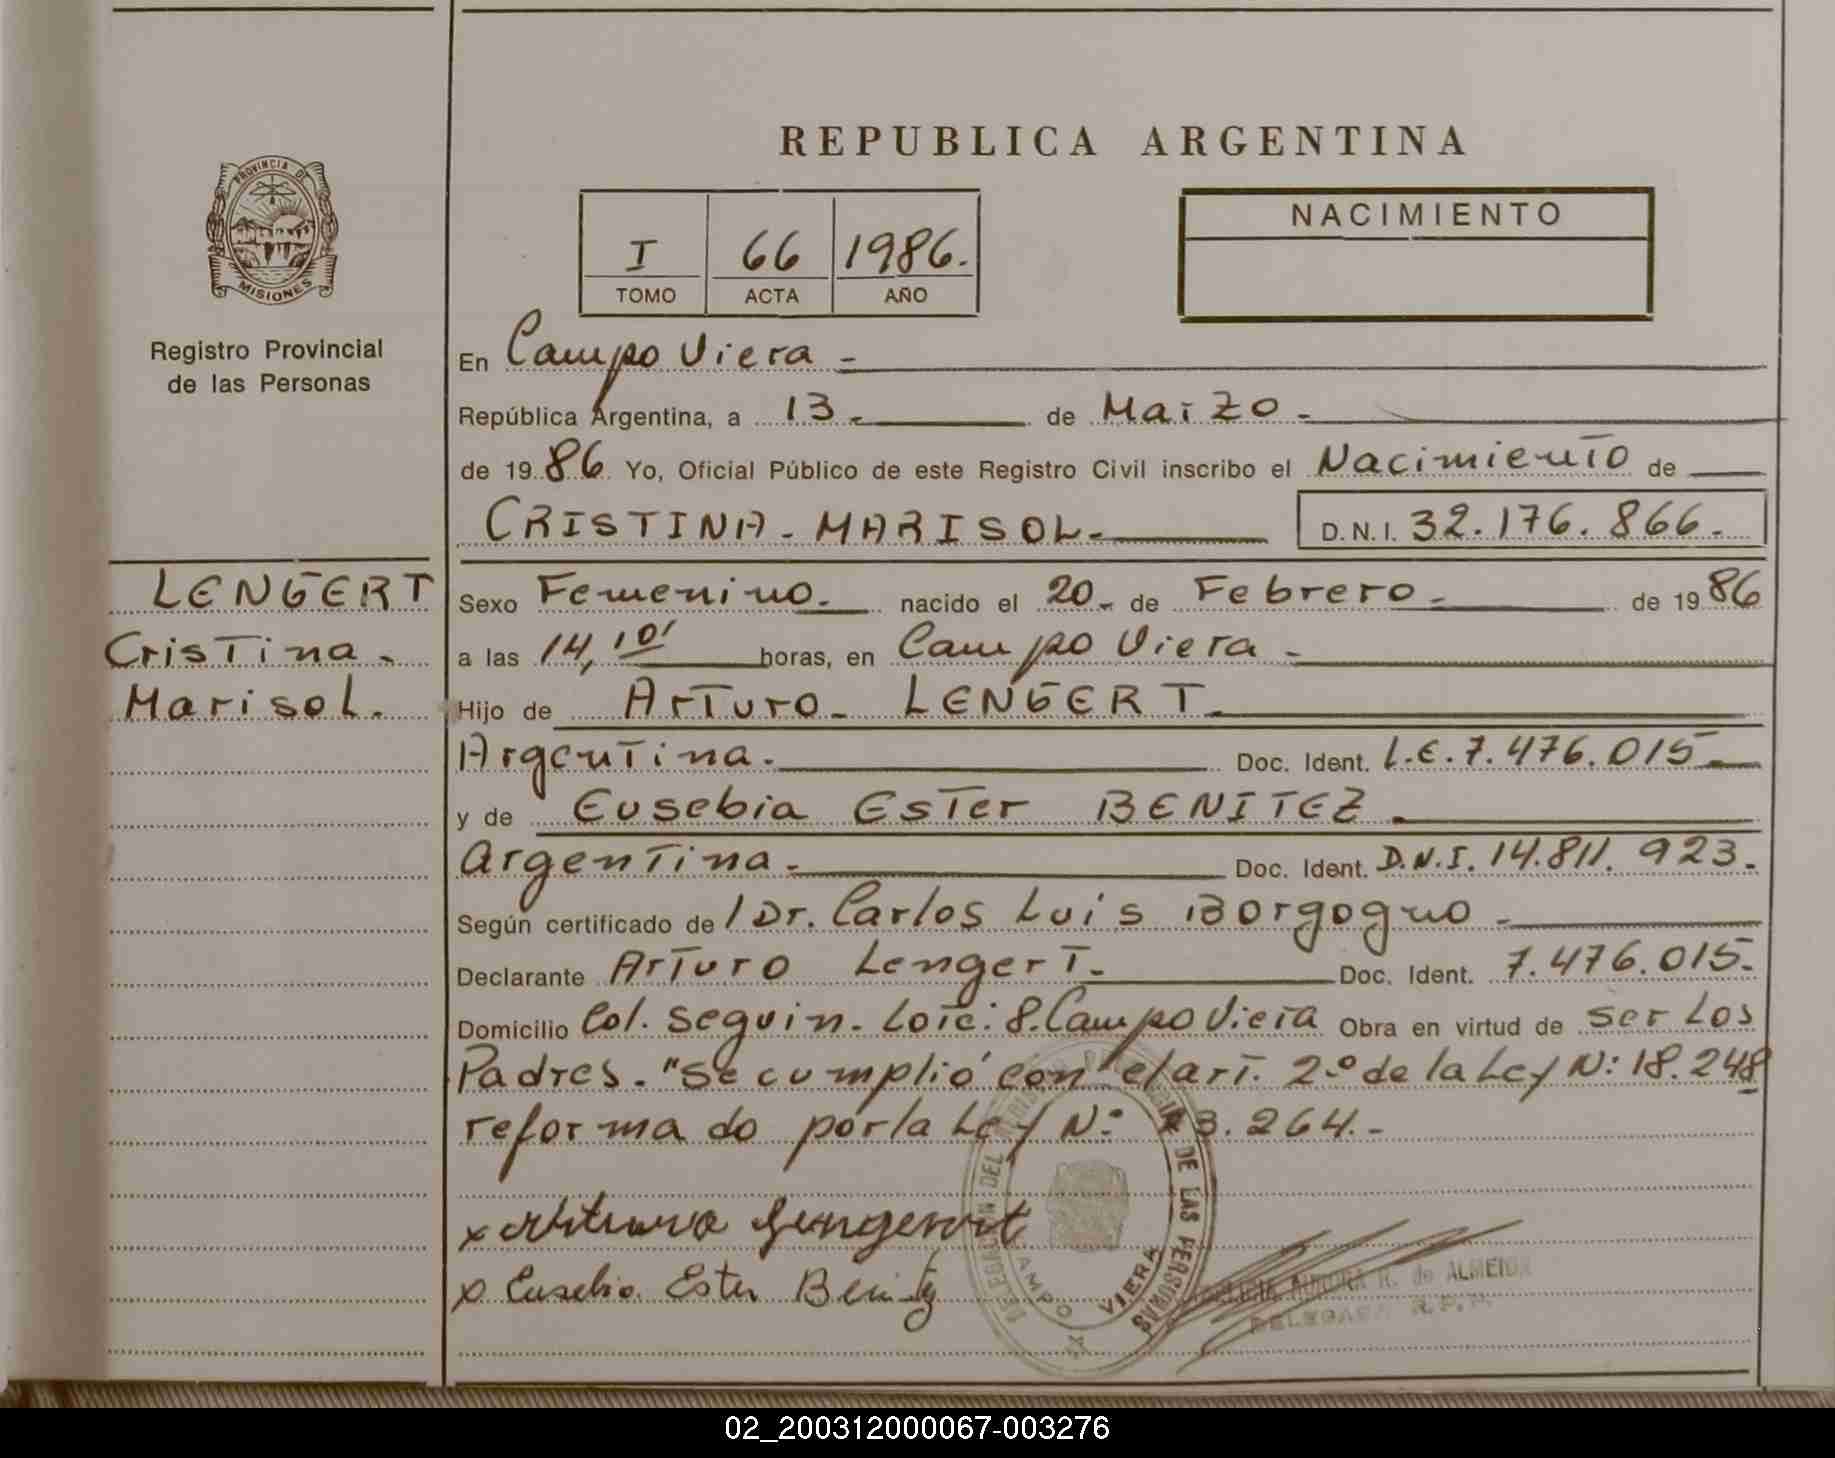 REPUBLICA ARGENTINA
PROVINCIA DE
MISIONES
Registro Provincial
de las Personas
I 66 1986.
TOMO ACTA AÑO
NACIMIENTO
En Campo Viera -
República Argentina, a 13.- de Marzo -
de 19 86 Yo, Oficial Público de este Registro Civil inscribo el Nacimiento de
CRISTINA - MARISOL - D.N.I. 32.176.866.-
LENGERT
Cristina -
Marisol.
Sexo Femenino. nacido el 20 - de Febrero - de 19 86
a las 14,10' horas, en Campo Viera -
Hijo de Arturo - LENGERT.
Argentina. Doc. Ident. L.E. 7.476.015 -
y de Eusebia Ester BENITEZ.
Argentina - Doc. Ident. D.N.I. 14.811.923.
Según certificado de / Dr. Carlos Luis Borgogno -
Declarante Arturo Lengert. Doc. Ident. 7.476.015.
Domicilio Col. Seguin - Lote: 8. Campo Viera Obra en virtud de ser Los
Padres. "Se cumplió con el art. 2º de la Ley N: 18.248
reformado por la Ley Nº 23.264.-
x Arturo Lengert
x Eusebia Ester Benitez
DELEGACION DEL REGISTRO PROVINCIAL DE LAS PERSONAS
CAMPO VIERA
AURORA R. de ALMEIDA
DELEGADA R.P.P.
02_200312000067-003276